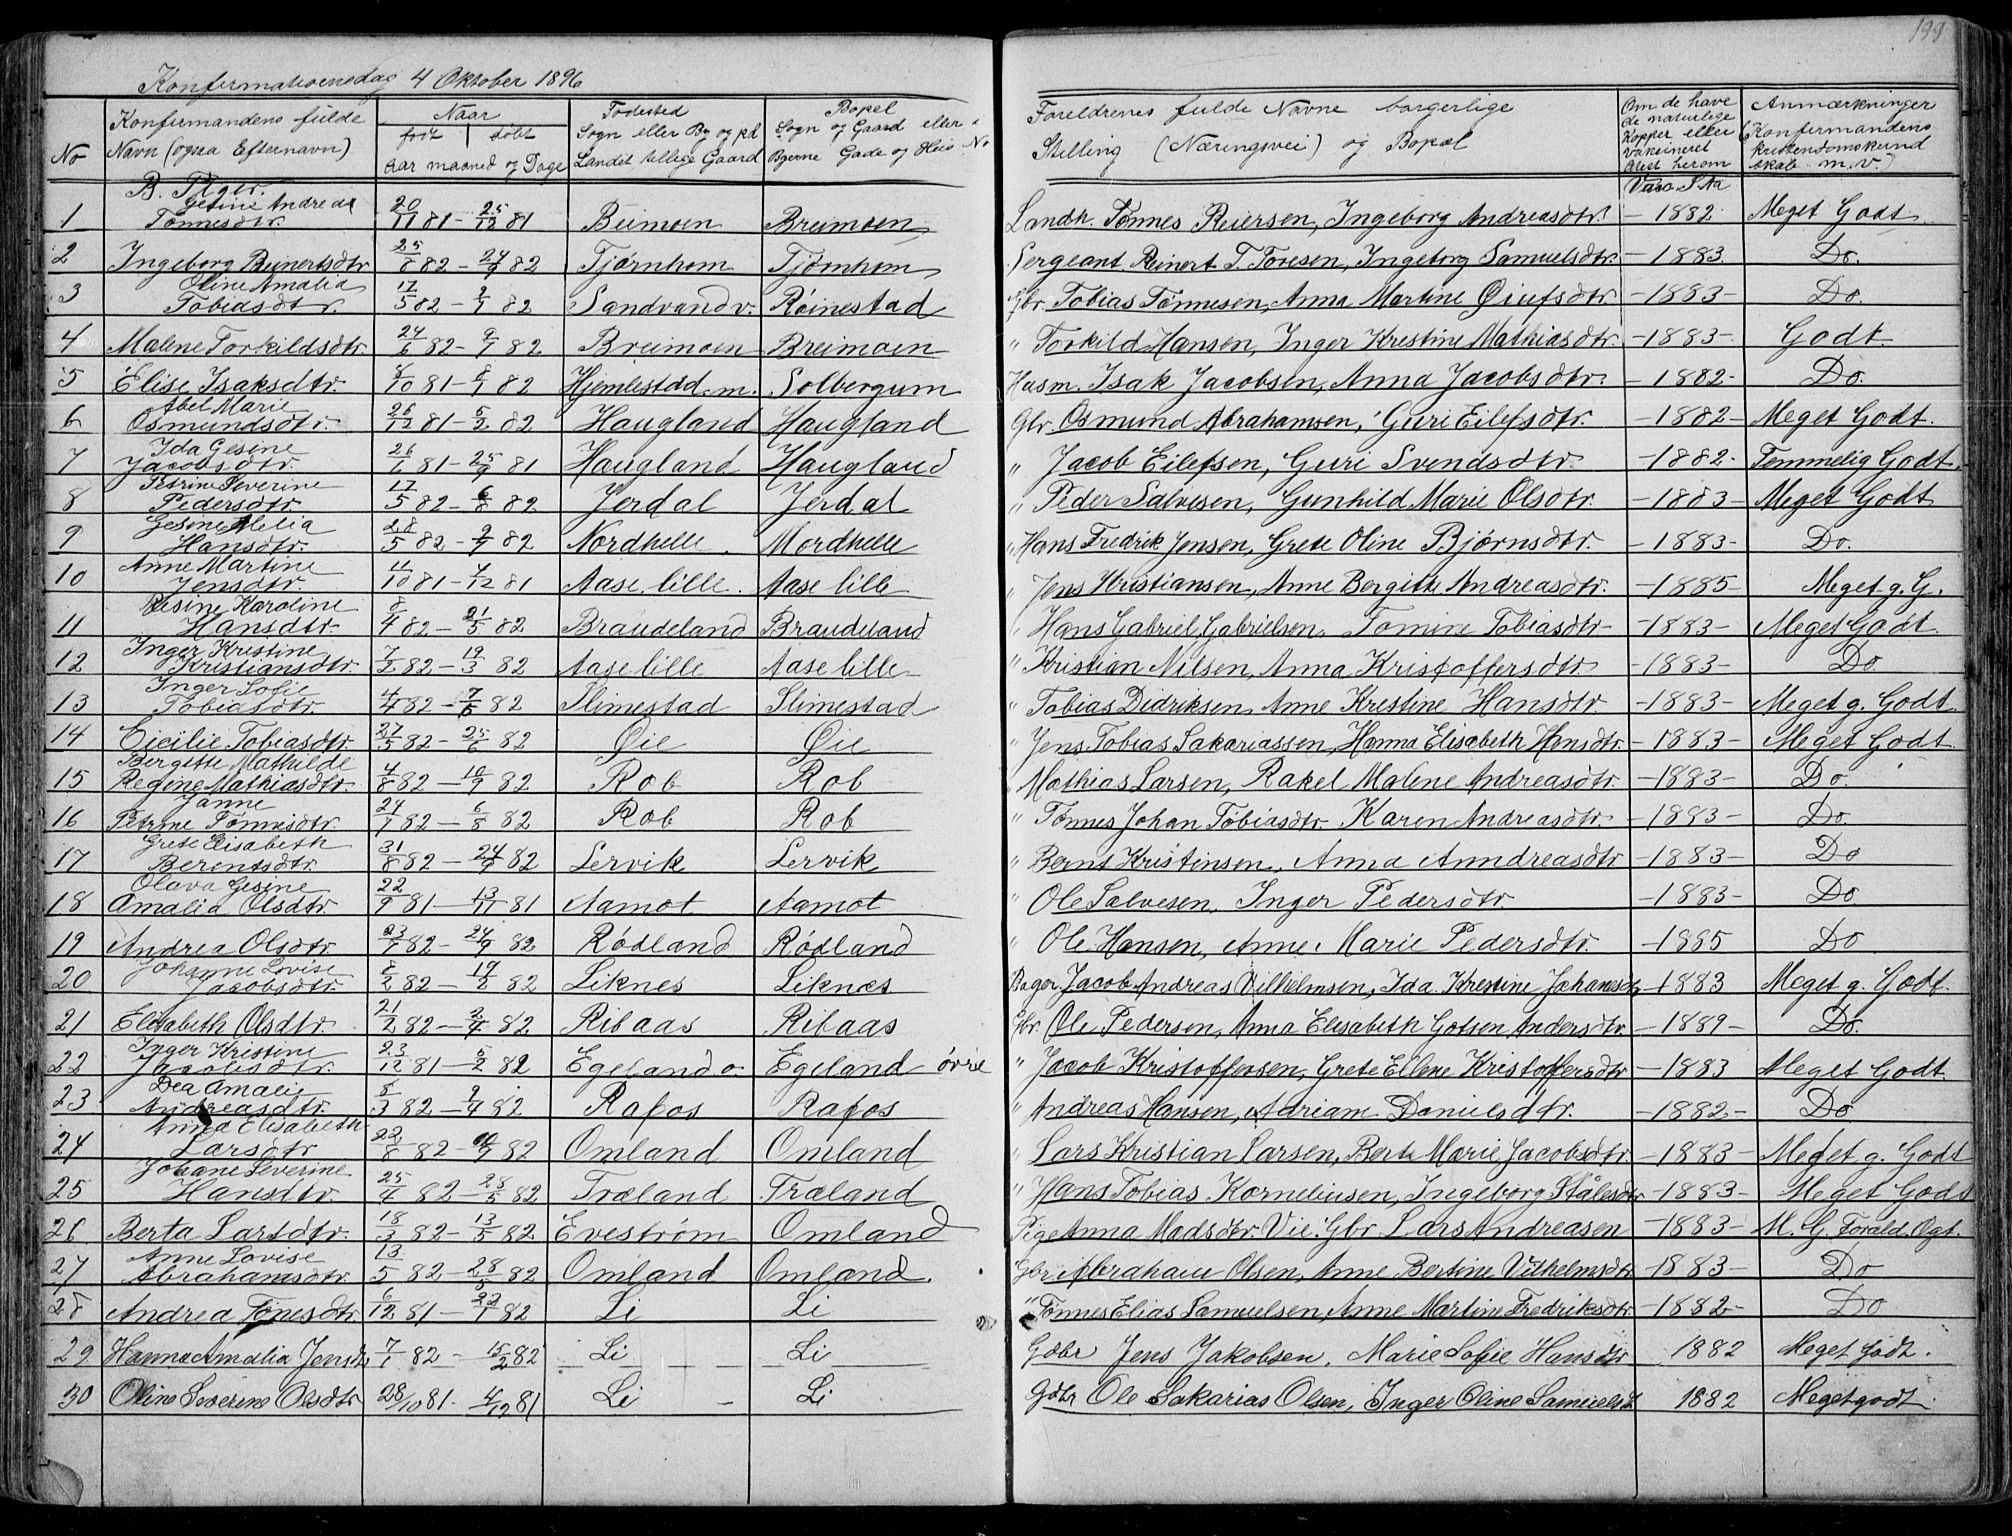 199
Konfirmationsdag 4 Oktober 1896
No
Konfirmandens fulde
Navn (ogsaa Efternavn)
Naar
født | døbt
Aar maaned og Dage
Fødested
Sogn eller By og paa
Landet tillige Gaard
Bopel
Sogn og Gaard eller i
Byerne Gade og Hus No
Foreldrenes fulde Navne borgerlige
Stilling (Næringsvei) og Bopæl
Om de have
de naturlige
Kopper eller
Vaksineret
Atest herom
Anmærkninger
(Konfirmandens
kristendomskund
skab m. v.)
B. Piger. Vacc. Sta
1 Gesine Andrea Tønnesdtr. 20/11 81 - 25/12 81 Beimoen Breimoen Landh. Tønnes Reiersen, Ingeborg Andreasdtr. - 1882 Meget Godt
2 Ingeborg Reinertsdtr 25/8 82 - 24/9 82 Tjørnhom Tjørnhom Sergeant Reinert T. Toresen, Ingeborg Samuelsdtr. - 1883 Do.
3 Oline Amalia Tobiasdtr. 17/5 82 - 2/7 82 Sandvand v. Røinestad Gbr. Tobias Tønnesen, Anna Martine Øiufsdtr. - 1883 - Do.
4 Malene Torkildsdtr 24/6 82 - 9/7 82 Breimoen Breimoen " Torkild Hansen, Inger Kristine Mathiasdtr. - 1883 - Godt.
5 Elise Isaksdtr. 8/10 81 - 8/1 82 Hjemlestad. m. Solbergum Husm. Isak Jacobsen, Anna Jacobsdtr. - 1882 - Do.
6 Abel Marie Osmundsdtr. 26/12 81 - 5/2 82 Haugland Haugland Gbr. Osmund Abrahamsen, Guri Eilefsdtr. - 1882 - Meget Godt.
7 Ida Gesine Jacobsdtr. 26/6 81 - 25/9 81 Haugland Haugland " Jacob Eilefsen, Guri Svendsdtr - 1882 - Temmelig Godt.
8 Petrine Severine Pedersdtr. 17/5 82 - 6/8 82 Jerdal Jerdal " Peder Salvesen, Gunhild Marie Olsdtr. - 1883 - Meget Godt
9 Gesine Melia Hansdtr. 28/5 82 - 9/7 82 Nordhelle Nordhelle " Hans Fredrik Jensen, Grete Oline Bjørnsdtr. - 1883 - Do.
10 Anne Martine Jensdtr. 11/10 81 - 4/12 81 Aase lille. Aase lille " Jens Kristiansen, Anne Bergitte Andreasdtr. - 1885 - Meget g. G.
11 Resine Karoline Hansdtr. 8/4 82 - 21/5 82 Braudeland Braudeland " Hans Gabriel Gabrielsen, Tomine Tobiasdtr - 1883 - Meget Godt.
12 Inger Kristine Kristiansdtr. 7/2 82 - 19/3 82 Aase lille Aase lille " Kristian Nilsen, Anna Kristoffersdtr - 1883 - Do
13 Inger Sofie Tobiasdtr. 4/4 82 - 7/5 82 Slimestad Slimestad " Tobias Didriksen, Anne Kristine Hansdtr - 1883 - Meget g. Godt
14 Cicilie Tobiasdtr. 27/5 82 - 25/6 82 Øie Øie " Jens Tobias Sakariassen, Hanna Elisabeth Hansdtr. - 1883 - Meget Godt
15 Bergitte Mathilde Regine Mathiasdtr. 4/8 82 - 10/9 82 Rob Rob " Mathias Larsen, Rakel Malene Andreasdtr. - 1883 - Do
16 Janne Petrine Tønnesdtr. 24/7 82 - 6/8 82 Rob Rob " Tønnes Johan Tobiasdtr. Karen Andreasdtr. - 1883 - Do.
17 Grete Elisabeth Berentsdtr. 31/8 82 - 24/9 82 Lervik Lervik " Bernt Kristinsen, Anna Anndreasdtr - 1883 - Do
18 Olava Gesine Amalia Olsdtr. 22/9 81 - 13/11 81 Aamot Aamot " Ole Salvesen, Inger Pedersdtr. - 1883 - Do.
19 Andrea Olsdtr. 23/7 82 - 24/9 82 Rødland Rødland " Ole Hansen, Anne Marie Pedersdtr. - 1885 Do
20 Johanne Lovise Jacobsdtr. 8/2 82 - 19/2 82 Liknes Liknes Bager Jacob Andreas Vilhelmsen, Ida Kristine Johansdtr - 1883 Meget g. Godt.
21 Elisabeth Olsdtr. 21/2 82 - 2/4 82 Ribaas Ribaas Gbr. Ole Pedersen, Anna Elisabeth Gotsen Andersdtr. - 1889 - Do.
22 Inger Kristine Jacobsdtr. 23/12 81 - 5/2 82 Egeland ø. Egeland øvrie " Jacob Kristoffersen, Grete Ellene Kristoffersdtr - 1883 Meget Godt.
23 Dea Amalie Andreasdtr. 8/3 82 - 9/4 82 Rafos Rafos " Andreas Hansen, Adriam Danielsdtr. - 1882 - Do
24 Anna Elisabeth Larsdtr 22/8 82 - /9 82 Omland Omland " Lars Kristian Larsen, Berte Marie Jacobsdtr. - 1883 - Meget g. Godt
25 Johane Severine Hansdtr. 25/4 82 - 28/5 82 Træland Træland " Hans Tobias Korneliusen, Ingeborg Stålesdtr - 1883 - Meget Godt
26 Berta Larsdtr. 18/3 82 - 13/5 82 Evestrøm Omland Pige Anna Madsdtr. Vie. Gbr Lars Andreasen - 1883 - M. G. Forald. Ogt.
27 Anne Lovise Abrahamsdtr. 13/5 82 - 28/5 82 Omland Omland. Gbr Abraham Olsen, Anne Bertine Vilhelmsdtr - 1883 - Do
28 Andrea Tønesdtr 6/12 81 - 22/1 82 Li Li " Tønnes Elias Samuelsen, Anne Martine Fredriksdtr - 1882 - Do
29 Hanna Amalia Jensdtr 7/1 82 - 15/2 82 Li Li Gdbr Jens Jakobsen. Marie Sofie Hansdtr 1882 Meget godt.
30 Oline Severine Olsdtr 28/10 81. 4/12 81 Li - Li Gdbr Ole Sakarias Olsen, Inger Oline Samuelsd 1882 Meget godt.